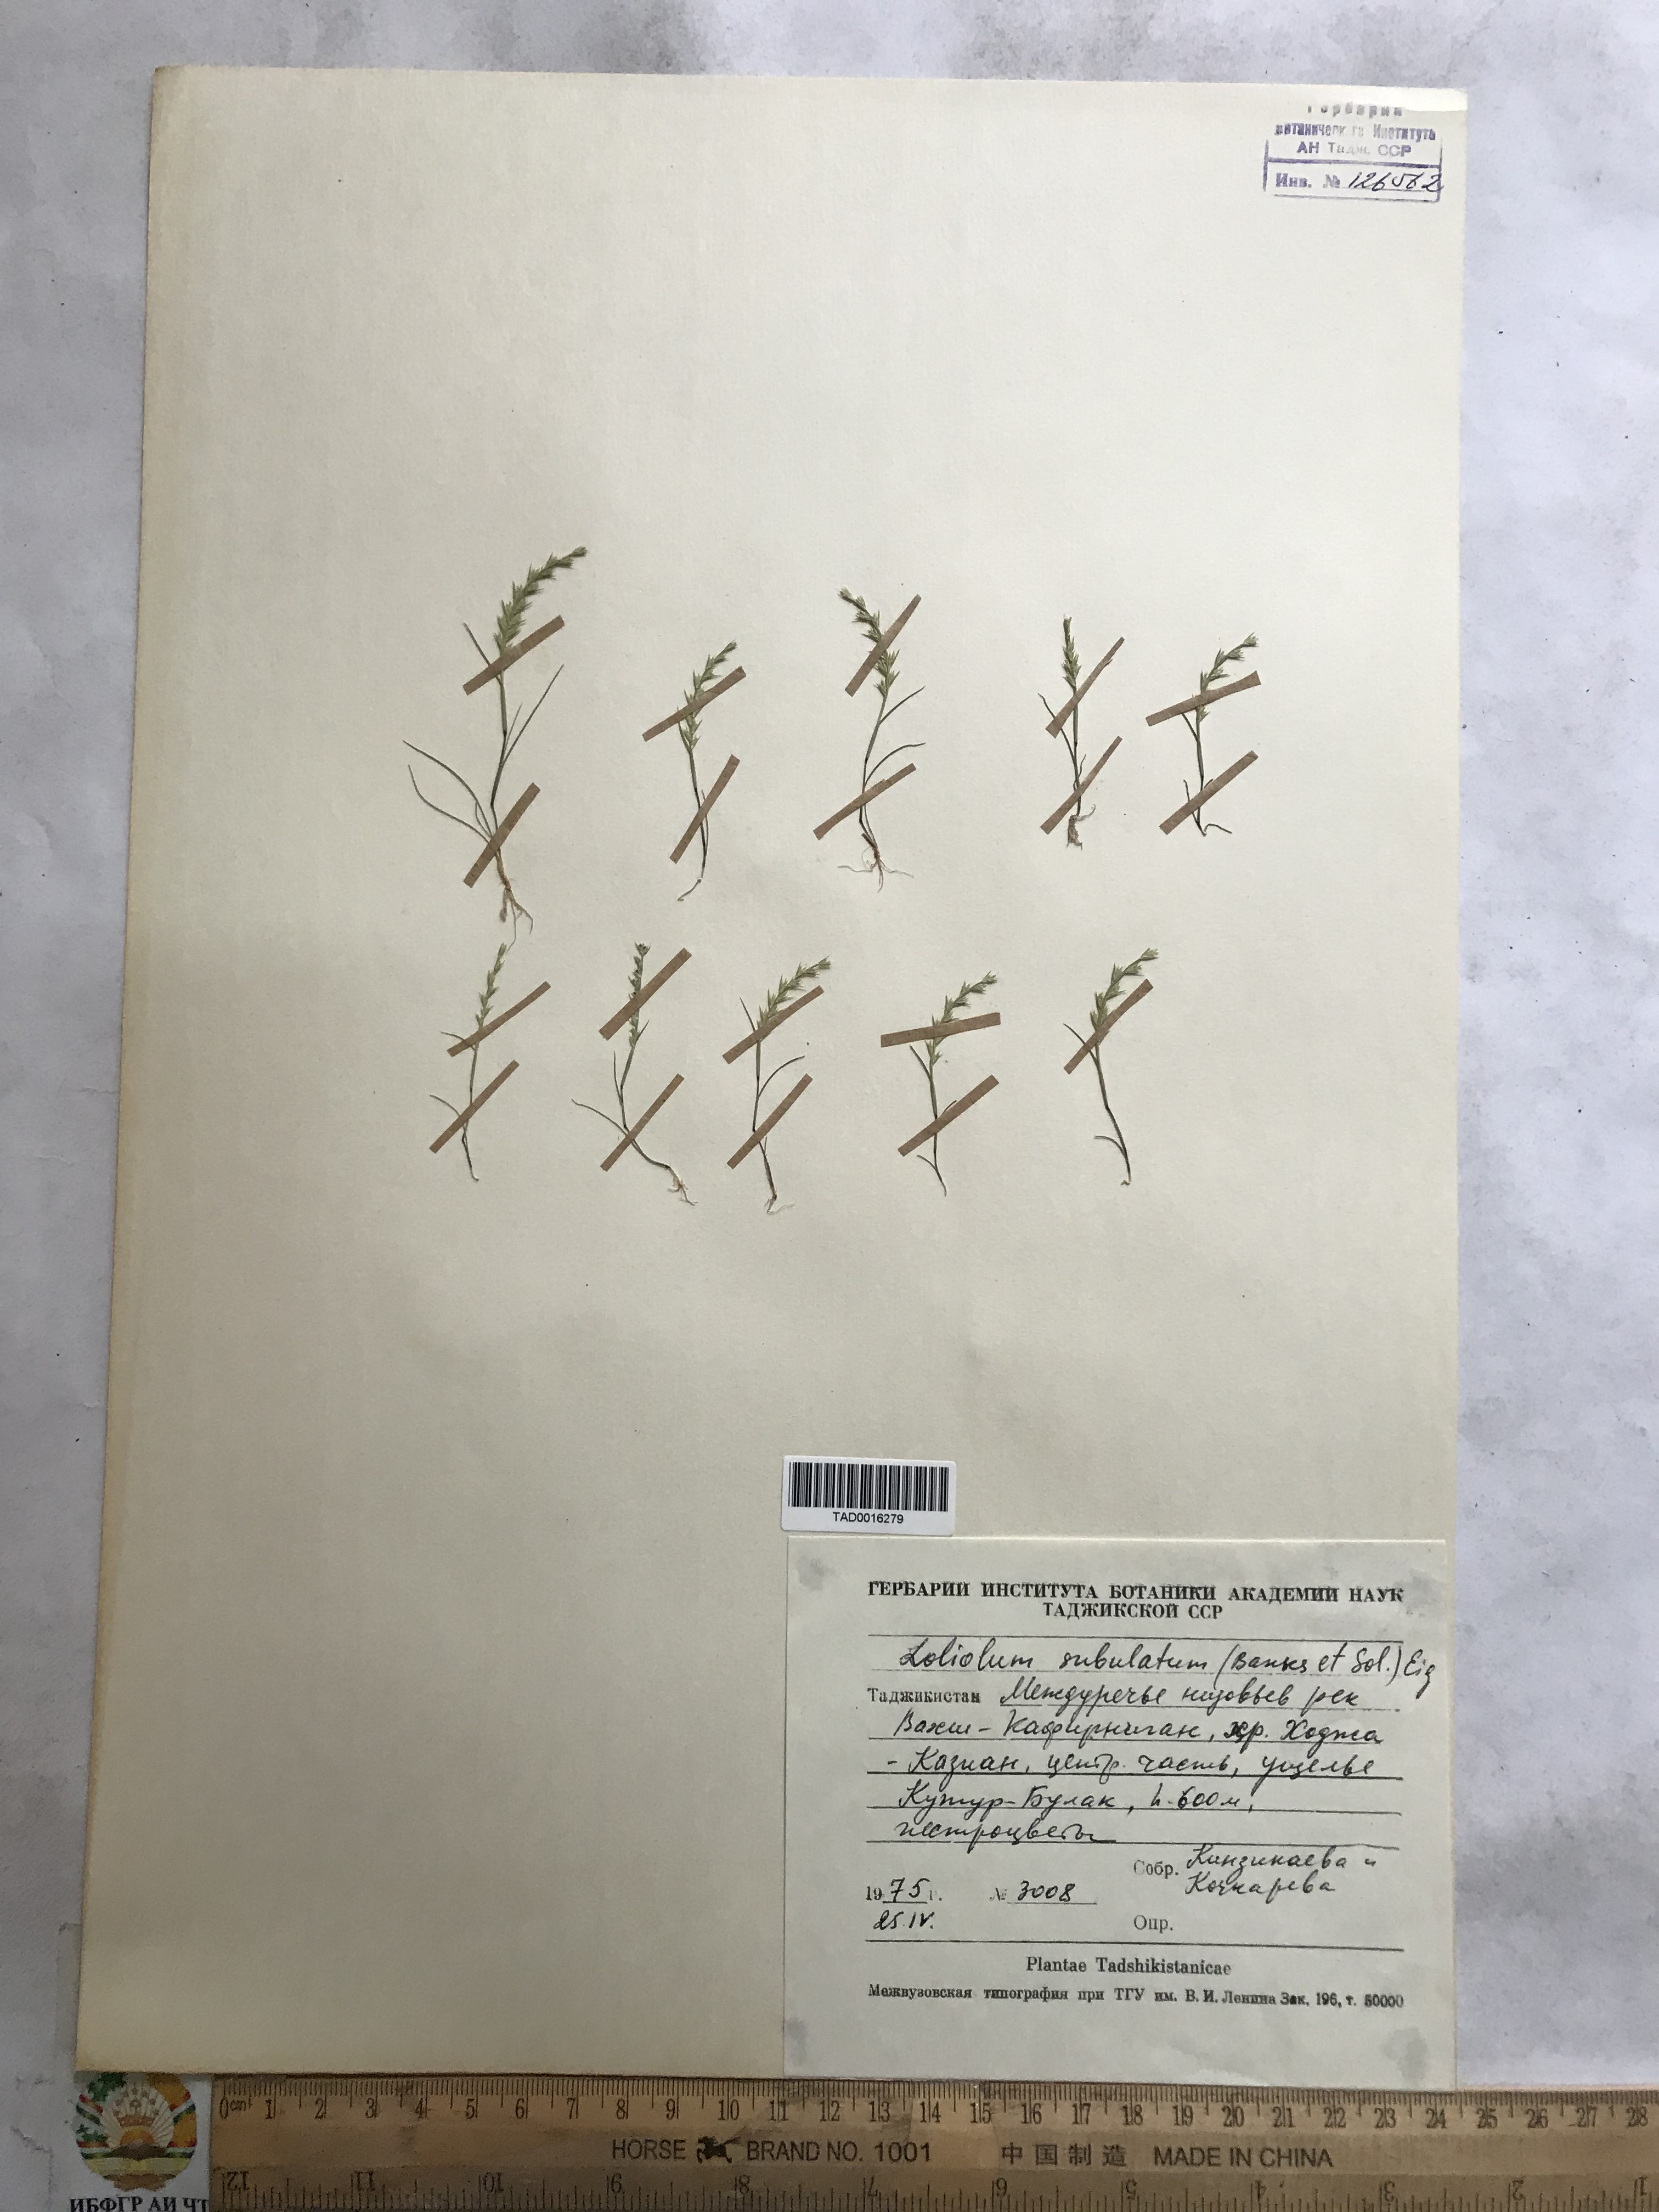 Гербарий
Ботанического Института
АН Тадж. ССР
Инв. № 126562
TAD0016279
ГЕРБАРИЙ ИНСТИТУТА БОТАНИКИ АКАДЕМИИ НАУК
ТАДЖИКСКОЙ ССР
Loliolum subulatum (Banks et Sol.) Eig
Таджикистан Междуречье низовьев рек
Вахш - Кафирниган, хр. Ходжа
- Казиан, центр. часть, ущелье
Кутур-Булак, h-600м,
пестроцветы
Собр. Кинзикаева и
Кочкарева
1975 г. № 3008
25.IV.
Опр.
Plantae Tadshikistanicae
Межвузовская типография при ТГУ им. В. И. Ленина Зак. 196, т. 50000
0cm 1 2 3 4 5 6 7 8 9 10 11 12 13 14 15 16 17 18 19 20 21 22 23 24 25 26 27 28
HORSE BRAND NO. 1001 中国制造 MADE IN CHINA
12 11 10 9 8 7 6 5 4 3 2 1
ИБФГР АИ ЧТ